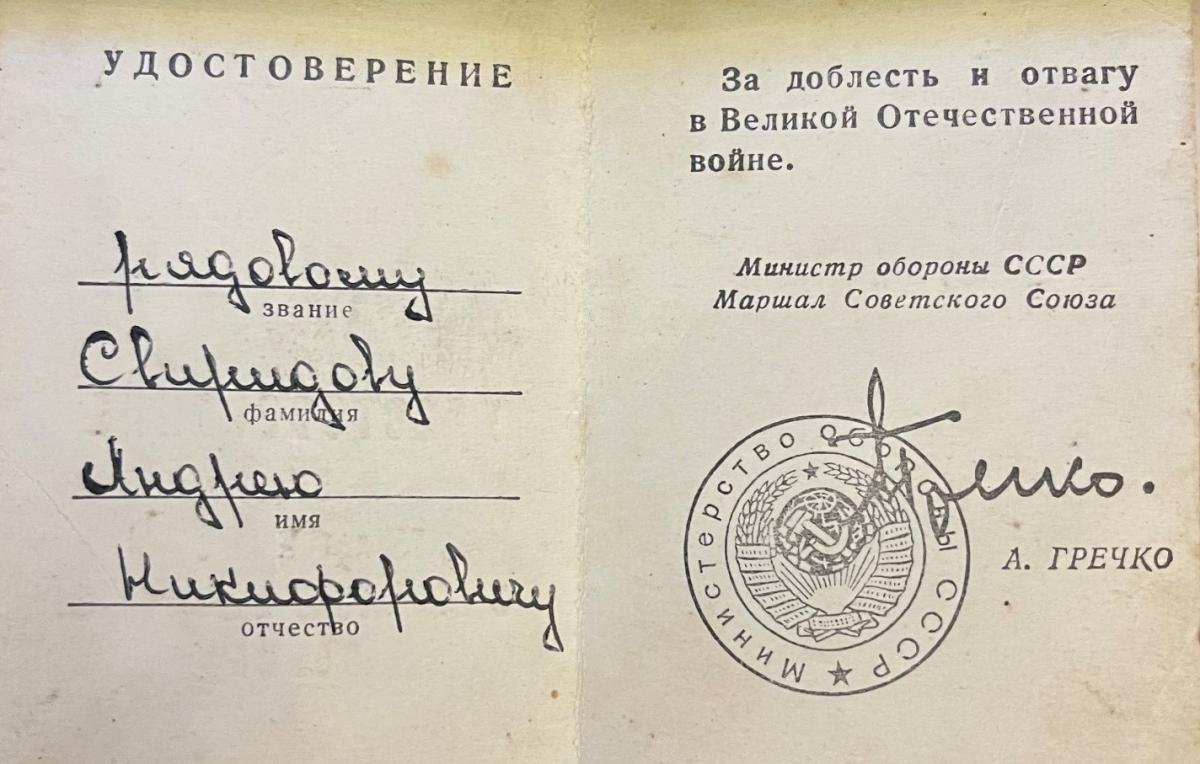 УДОСТОВЕРЕНИЕ
рядовому
звание
Свиридову
фамилия
Андрею
имя
Никифоровичу
отчество
За доблесть и отвагу
в Великой Отечественной
войне.
Министр обороны СССР
Маршал Советского Союза
Гречко.
МИНИСТЕРСТВО ОБОРОНЫ СССР
А. ГРЕЧКО